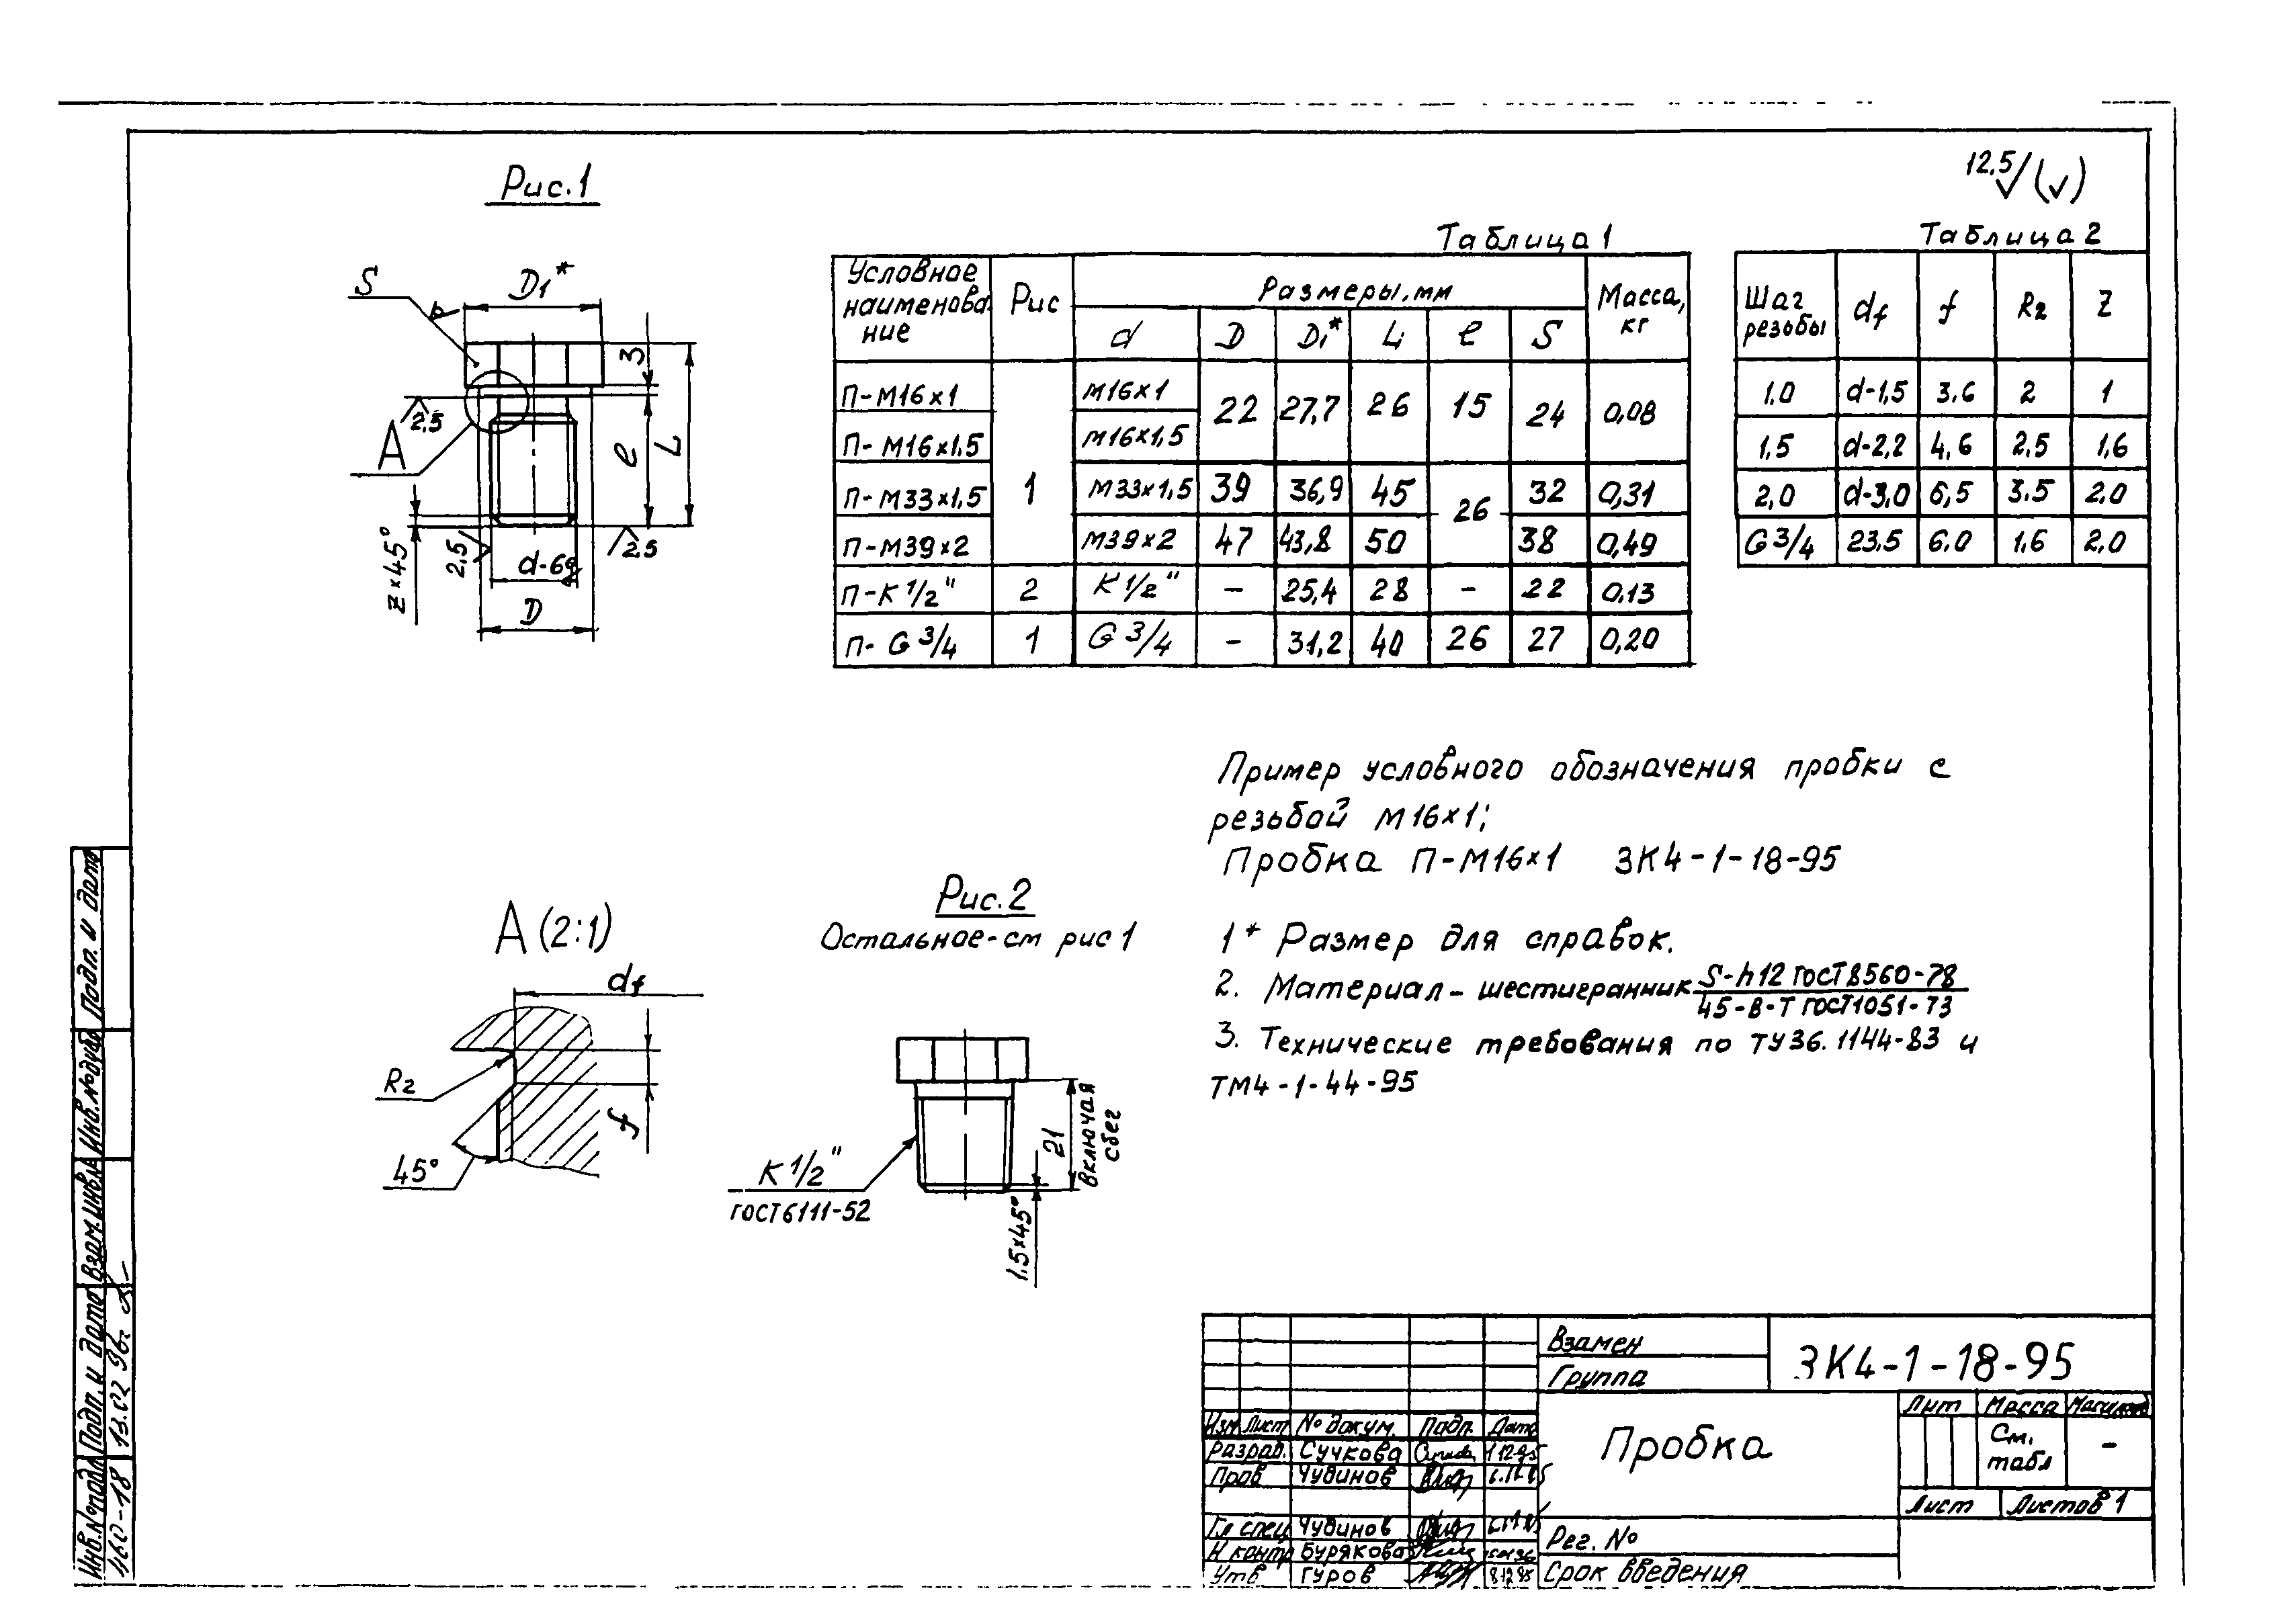 12,5 (√)
Рис.1
S
D1*
3
2,5
А
l
L
z×45°
2,5
d-6g
2,5
D
Таблица 1
Условное наименование Рис Размеры, мм Масса, кг
d D D1* L l S
П-М16×1 1 М16×1 22 27,7 26 15 24 0,08
П-М16×1,5 М16×1,5
П-М33×1,5 М33×1,5 39 36,9 45 26 32 0,31
П-М39×2 М39×2 47 43,8 50 38 0,49
П-К 1/2" 2 К 1/2" - 25,4 28 - 22 0,13
П-G 3/4 1 G 3/4 - 31,2 40 26 27 0,20
Таблица 2
Шаг резьбы df f R2 Z
1,0 d-1,5 3,6 2 1
1,5 d-2,2 4,6 2,5 1,6
2,0 d-3,0 6,5 3,5 2,0
G 3/4 23,5 6,0 1,6 2,0
Пример условного обозначения пробки с
резьбой М16×1;
Пробка П-М16×1 ЗК4-1-18-95
1* Размер для справок.
2. Материал - шестигранник S-h12 ГОСТ 8560-78
45-В-Т ГОСТ 1051-73
3. Технические требования по ТУ36.1144-83 и
ТМ4-1-44-95
А (2:1)
df
R2
f
45°
Рис.2
Остальное-см рис 1
К 1/2"
ГОСТ 6111-52
21
включая
сбег
1,5×45°
Подп. и дата
Инв.№дубл
Взам.инв.№
Подп. и дата
13.02 96г
Инв.№подл
460-18
Взамен
Группа
ЗК4-1-18-95
Изм Лист № докум. Подп. Дата
Разраб. Сучкова 1.12.95
Пров Чудинов
Гл спец Чудинов
Н контр Бурякова
Утв Гуров 8.12.95
Пробка
Лит Масса Масштаб
См.
табл
-
Лист Листов 1
Рег. №
Срок введения